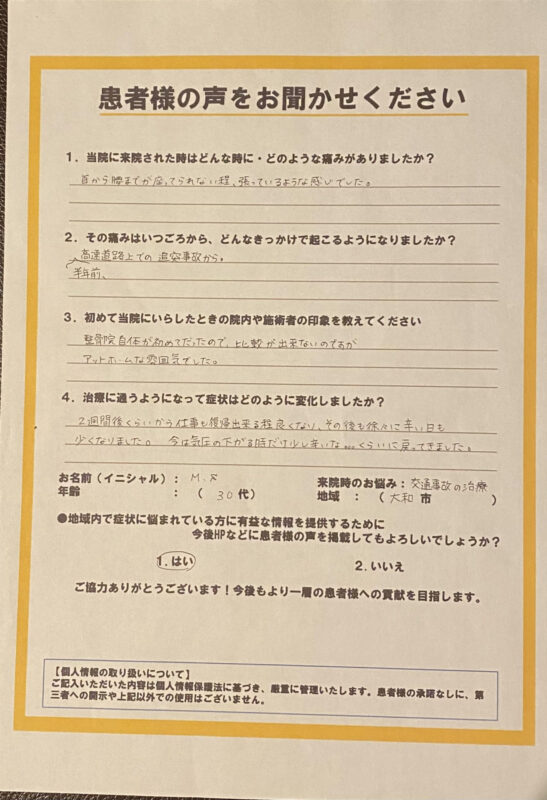 患者様の声をお聞かせください
1．当院に来院された時はどんな時に・どのような痛みがありましたか？
首から腰までが座ってられない程、張っているような感じでした。
2．その痛みはいつごろから、どんなきっかけで起こるようになりましたか？
高速道路上での追突事故から。
半年前、
3．初めて当院にいらしたときの院内や施術者の印象を教えてください
整骨院自体が初めてだったので、比較が出来ないのですが
アットホームな雰囲気でした。
4．治療に通うようになって症状はどのように変化しましたか？
2週間後くらいから仕事も復帰出来る程良くなり、その後も徐々に辛い日も
少なくなりました。 今は気圧の下がる時だけ少し辛いな…くらいに戻ってきました。
お名前（イニシャル）： M. 来院時のお悩み：交通事故の治療
年齢 ：（ 30代） 地域 ：（ 大和 市 ）
●地域内で症状に悩まれている方に有益な情報を提供するために
今後HPなどに患者様の声を掲載してもよろしいでしょうか？
1．はい 2．いいえ
ご協力ありがとうございます！今後もより一層の患者様への貢献を目指します。
【個人情報の取り扱いについて】
ご記入いただいた内容は個人情報保護法に基づき、厳重に管理いたします。患者様の承諾なしに、第
三者への開示や上記以外での使用はございません。